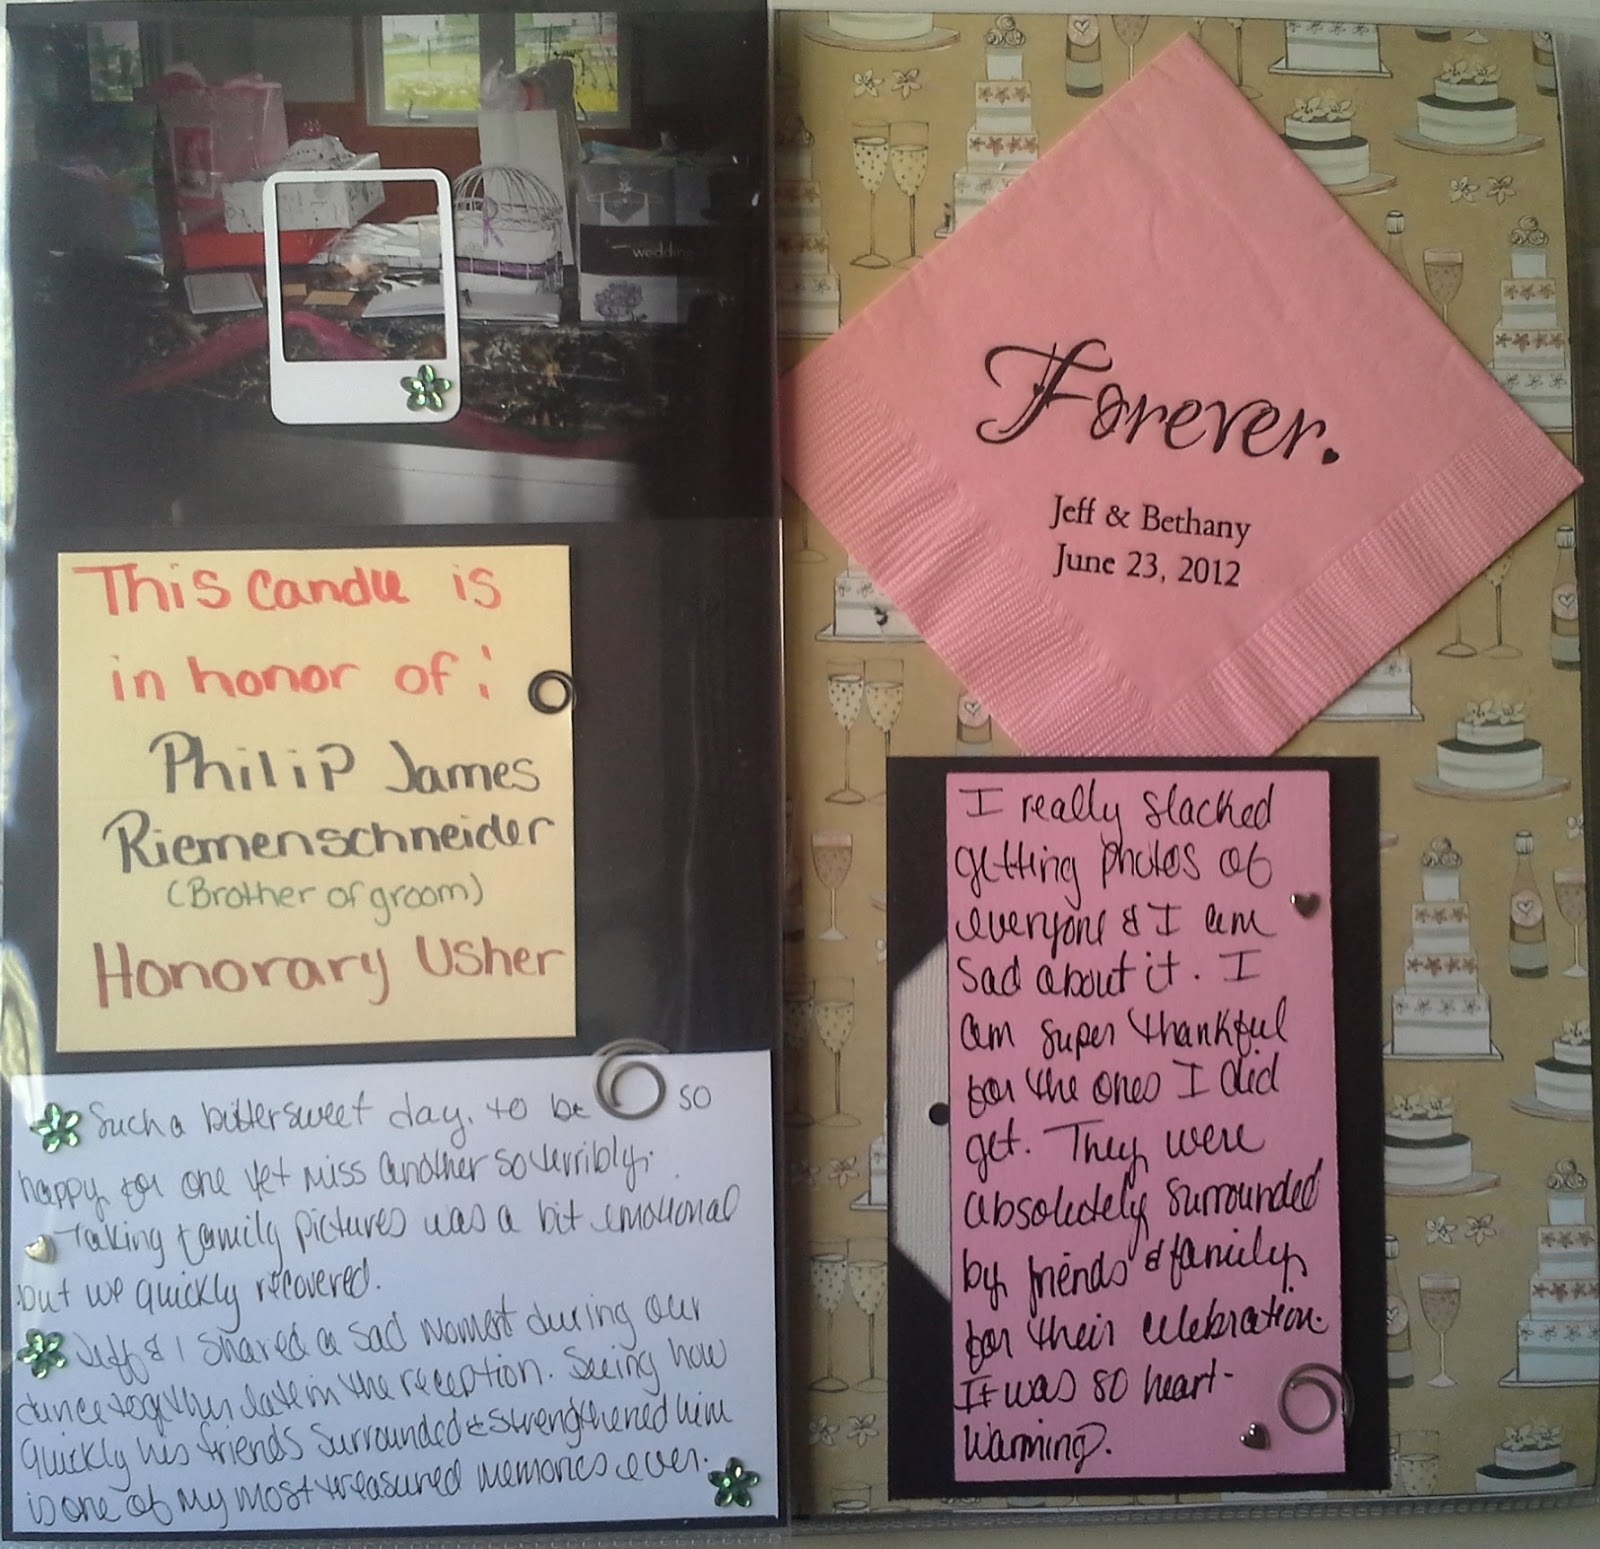 R
wedding
This Candle is
in honor of:
Philip James
Riemenschneider
(Brother of groom)
Honorary Usher
Such a bittersweet day, to be so
happy for one yet miss another so terribly.
Taking family pictures was a bit emotional
but we quickly recovered.
Jeff & I shared a sad moment during our
dance together late in the reception. Seeing how
quickly his friends surrounded & strengthened him
is one of my most treasured memories ever.
Forever.
Jeff & Bethany
June 23, 2012
I really slacked
getting photos of
everyone & I am
sad about it. I
am super thankful
for the ones I did
get. They were
absolutely surrounded
by friends & family
for their celebration.
It was so heart-
warming.